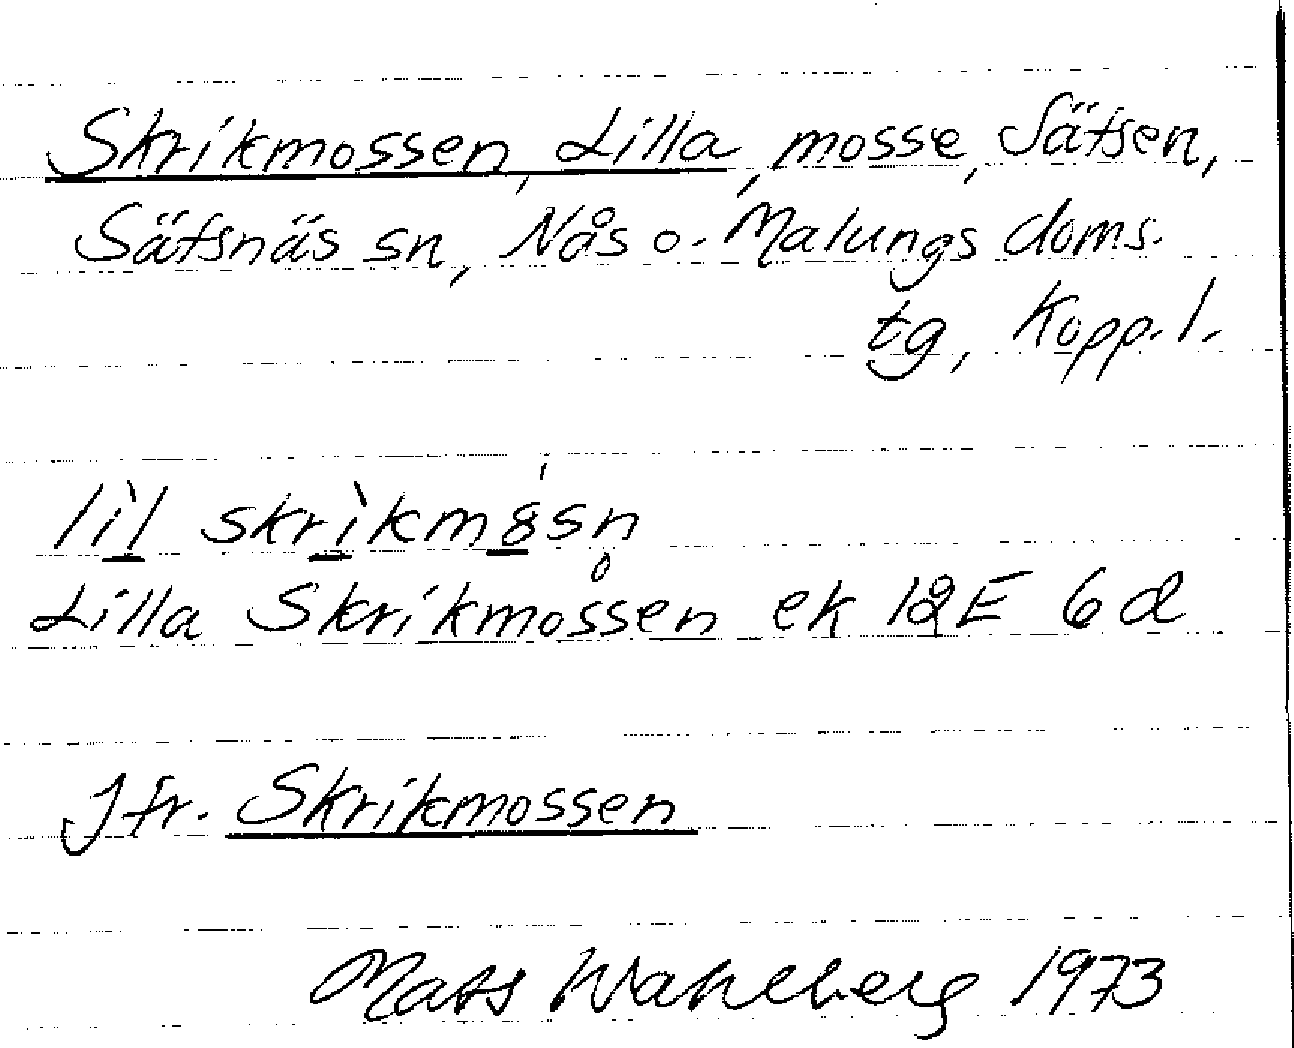 Skrikmossen, Lilla, mosse, Säfsen,
Säfsnäs sn, Nås o. Malungs doms.
tg, Kopp. l.
lìl skrìkm8́sn̥
Lilla Skrikmossen ek 12E 6d
Jfr. Skrikmossen
Mats Wahlberg 1973